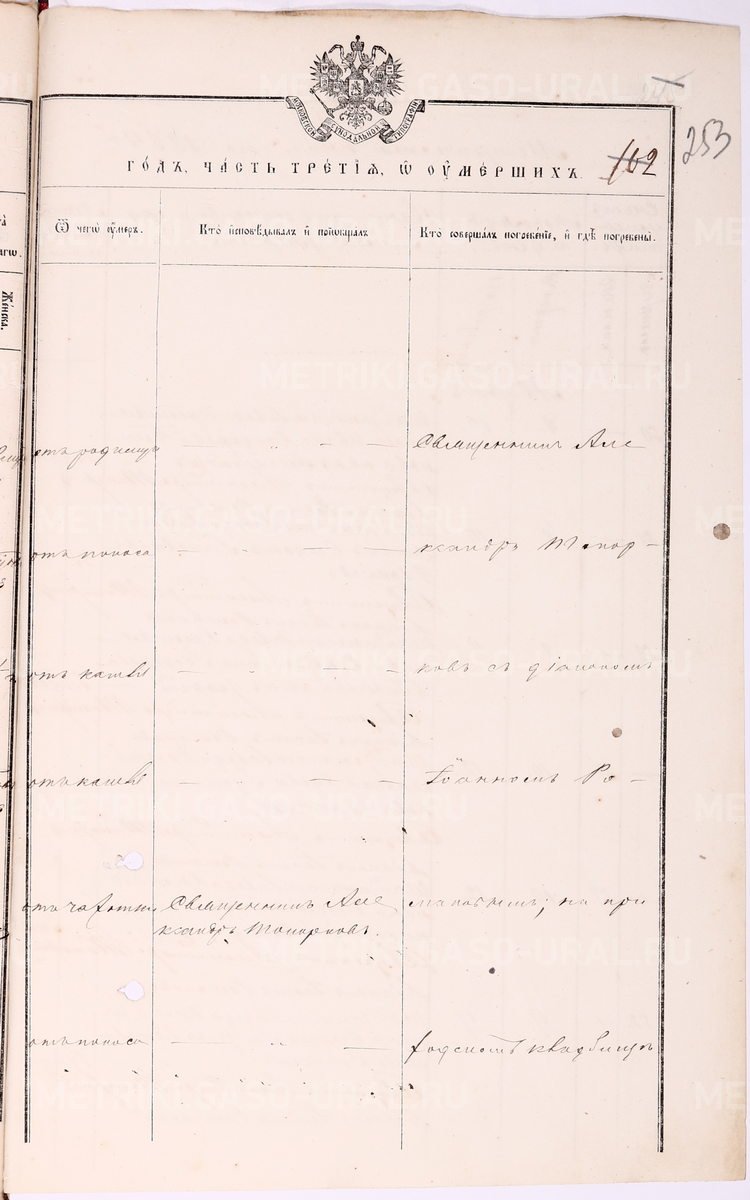 МОСКОВСКОЙ СѴНОДАЛЬНОЙ ТИПОГРАФІИ
253
ГО́ДЪ, ЧА́СТЬ ТРЕ́ТІѦ, Ѿ ОУ҆МЕ́РШИХЪ. 162
Ѿ чегѡ̀ оу҆́меръ.
Кто̀ и҆сповѣ́дывалъ и҆ прїѡбща́лъ
Кто̀ соверша́лъ погребе́нїе, и҆ гдѣ̀ погребены̀.
Же́нска.
отъ родимца
Священникъ Але
отъ поноса
ксандръ Топор-
отъ кашля
ковъ съ діакономъ
отъ кашля
Іоанномъ Ро-
отъ чахотки
Священникъ Але
ксандръ Топорковъ.
мановымъ; на при
отъ поноса
ходскомъ кладбищѣ
METRIKI.GASO-URAL.RU